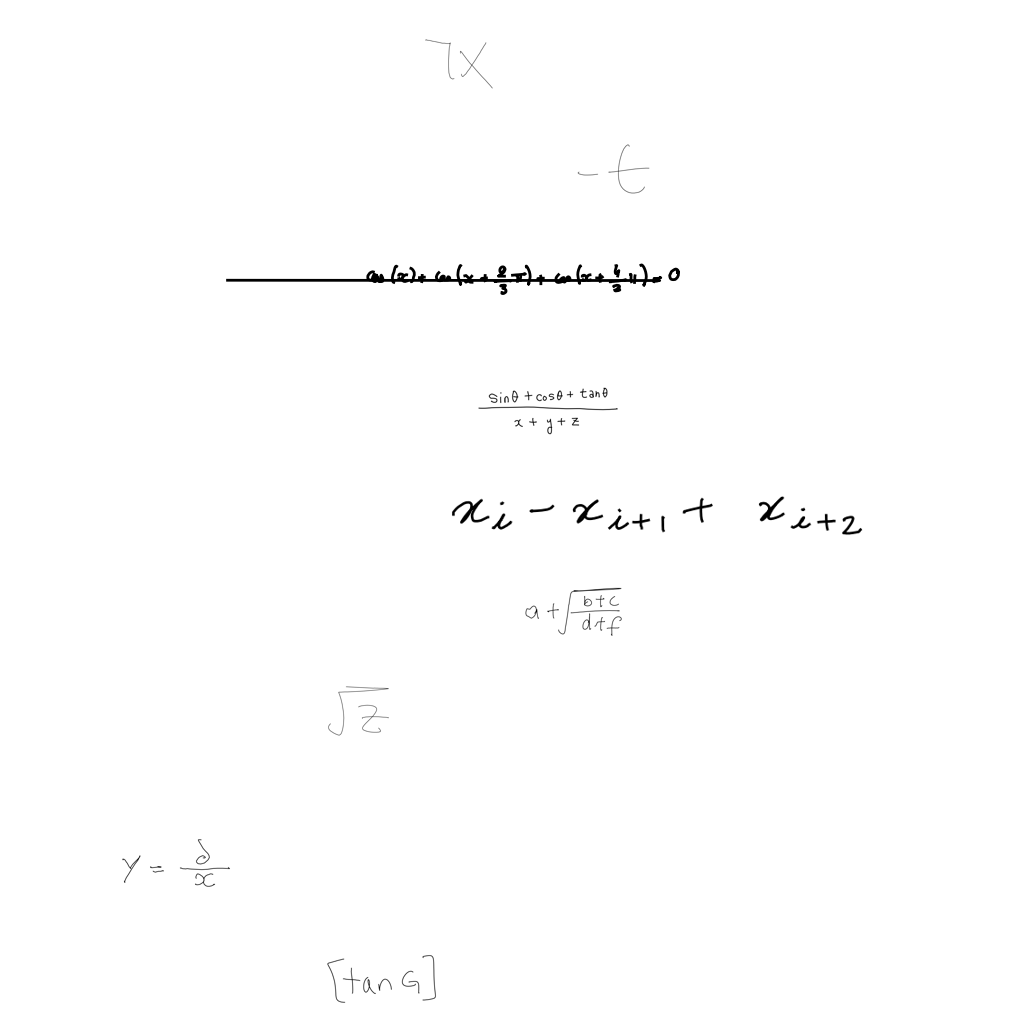 7X
-t
cos(x)+cos(x+\frac{2}{3}π)+cos(x+\frac{4}{3}π)=0
\frac{sinθ+cosθ+tanθ}{x+y+z}
x_i-x_{i+1}+x_{i+2}
a+\sqrt{\frac{b+c}{d+f}}
\sqrt{z}
y=\frac{∂}{x}
[tan G]